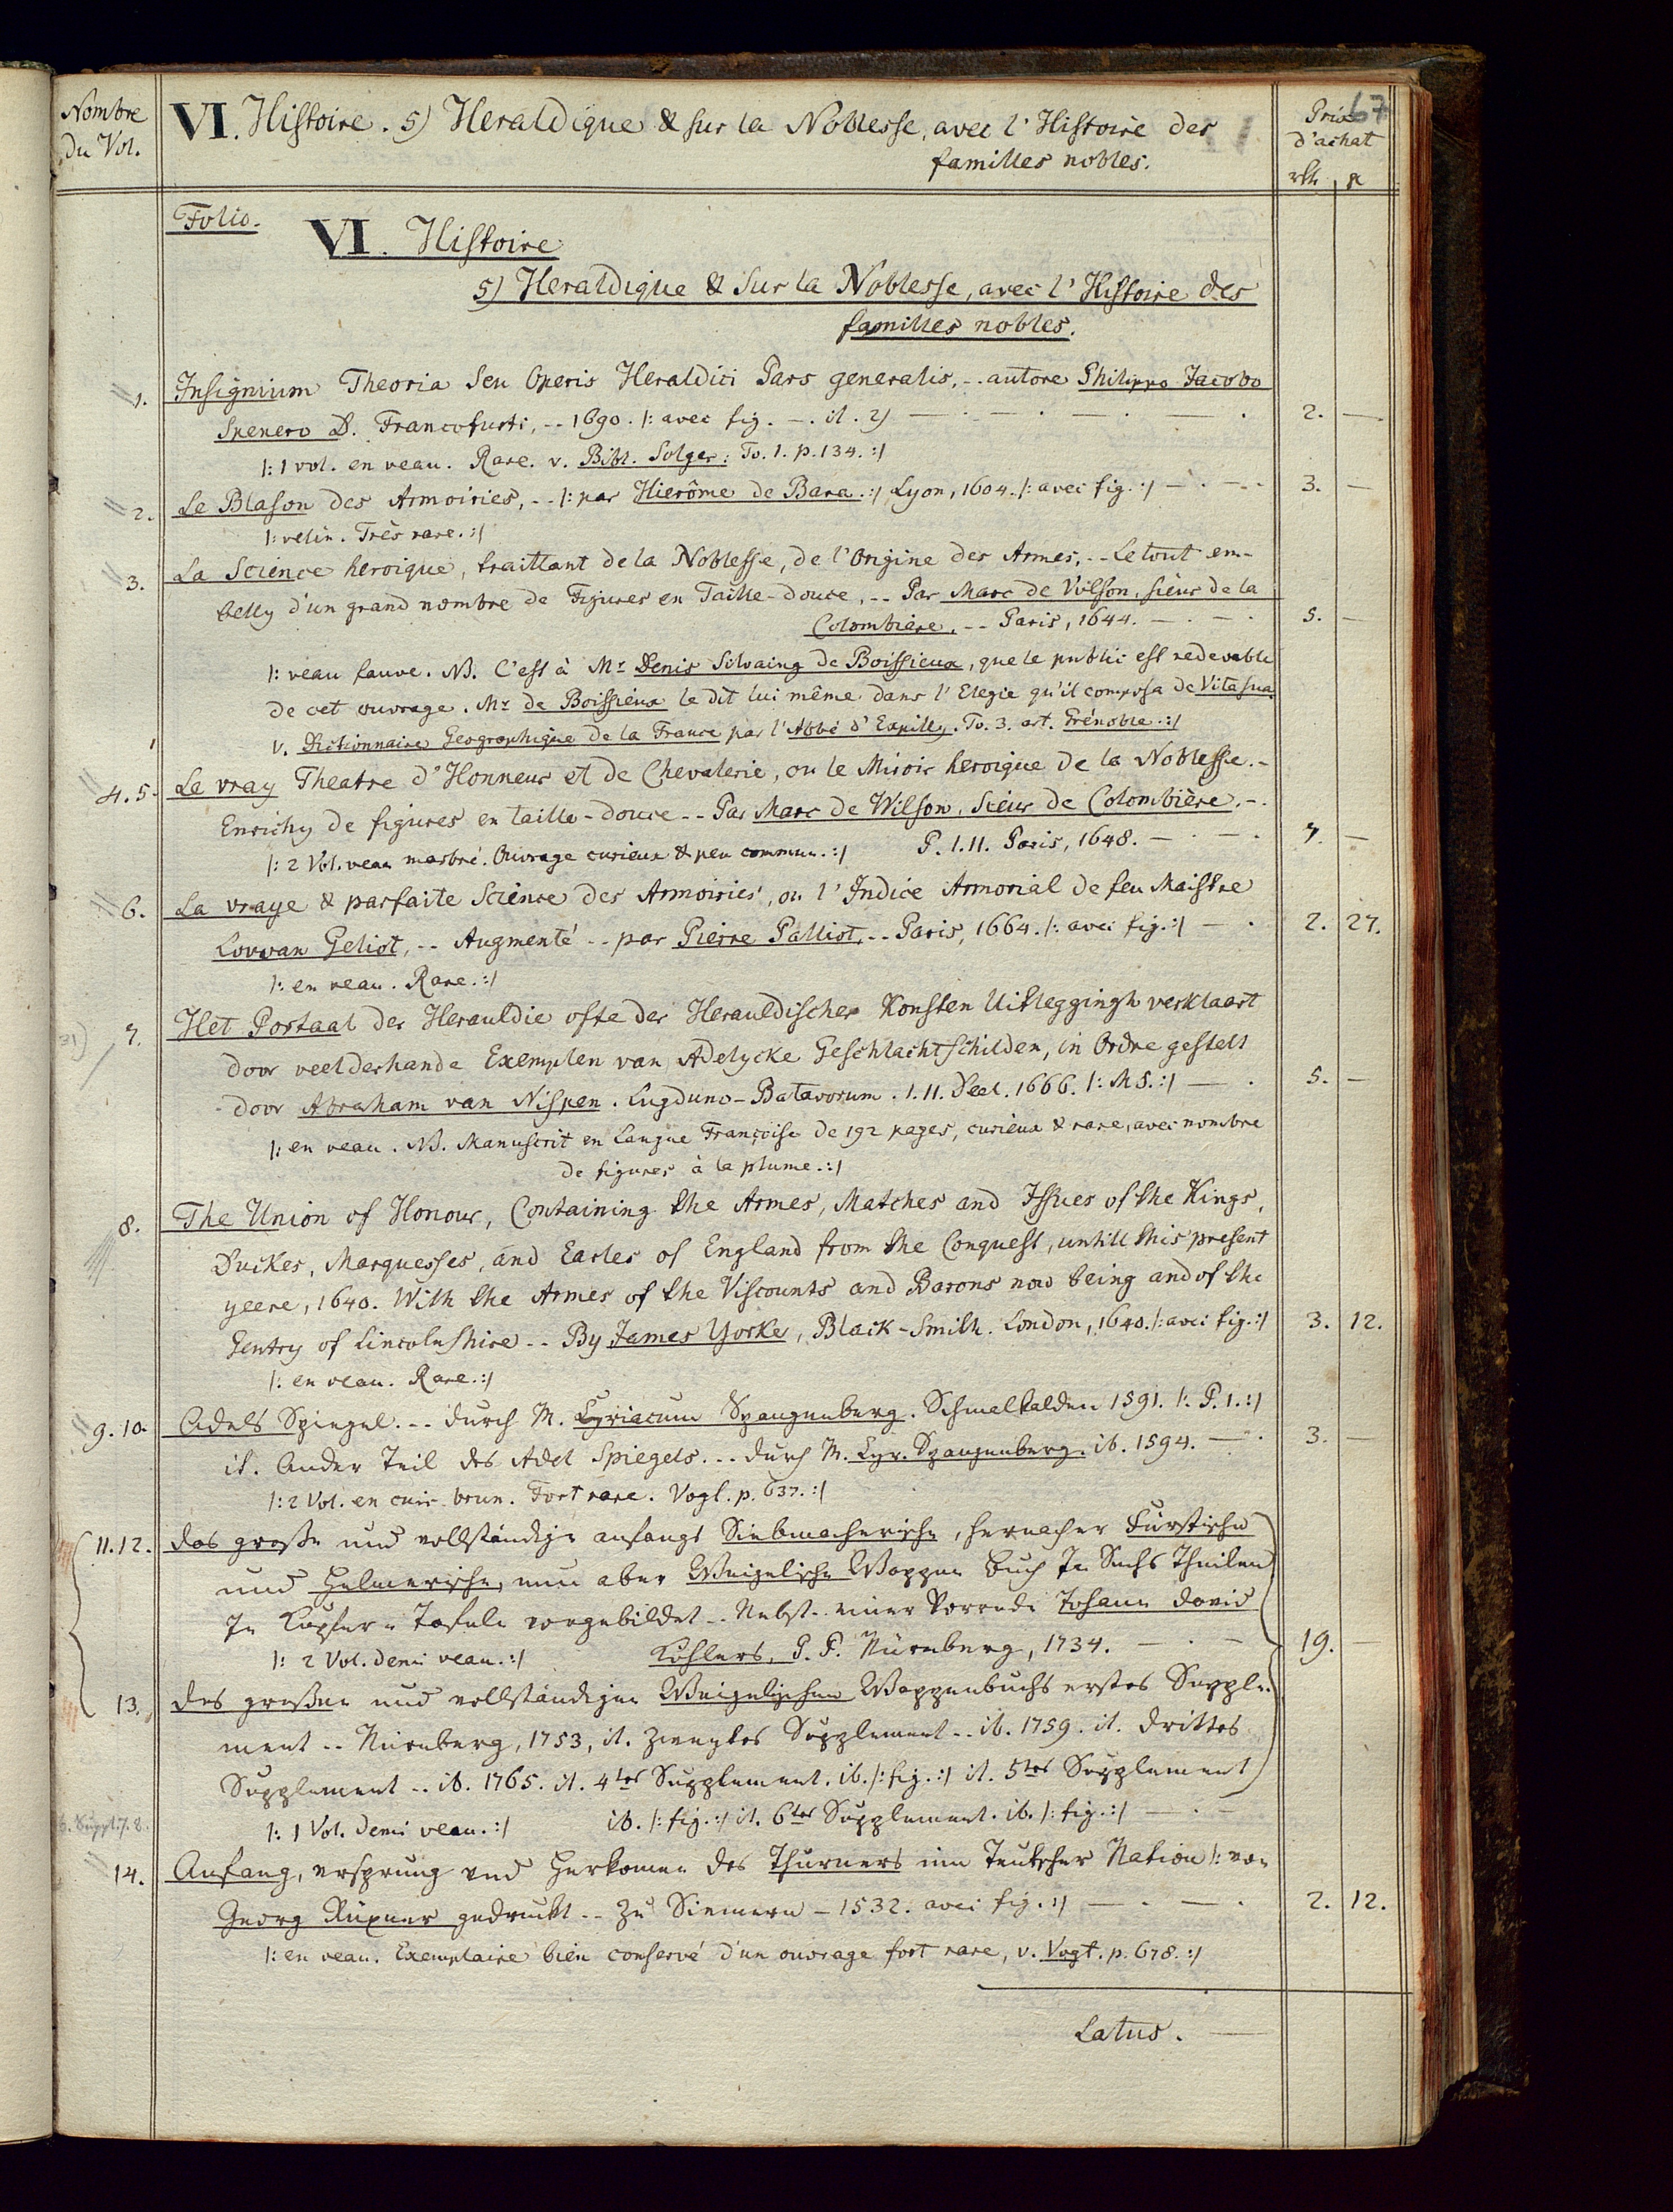 Nombre
du Vol.
VI. Histoire. 5) Heraldique & sur la Noblesse, avec l'Histoire des
familles nobles.
Prix
d'achat
67
Folio.
VI. Histoire
5) Heraldique & sur la Noblesse, avec l'Histoire des
familles nobles.
1. Insignium Theoria seu Operis Heraldici Pars generalis, -- autore Philippo Jacobo
Spenero D. Francofurti, -- 1690. /: avec fig. -. it. 2) 2. —
/: 1 vol. en veau. Rare. v. Bibl. Solger: To. 1. p. 134. :/
2. Le Blason des Armoiries, -- /: par Hierôme de Bara :/ Lyon, 1604. /: avec fig. :/ 3. —
/: velin. Très rare. :/
3. La Science heroique, traittant de la Noblesse, de l'Origine des Armes, -- Le tout em-
belly d'un grand nombre de Figures en Taille-douce, -- Par Marc de Vulson, sieur de la
Colombiere, -- Paris, 1644. 5. —
/: veau fauve. NB. C'est à Mr Denis Salvaing de Boissieux, que le public est redevable
de cet ouvrage. Mr de Boissieux le dit lui même dans l'Elegie qu'il composa de Vita sua.
v. Dictionnaire Geographique de la France par l'Abbé d'Expilly. To. 3. art. Grénoble. :/
4. 5. Le vray Theatre d'Honneur et de Chevalerie, ou le Miroir heroique de la Noblesse. -
Enrichy de figures en taille-douce -- Par Marc de Wilson, Sieur de Colombière. -.
/: 2 Vol. veau marbré. Ouvrage curieux & peu commun. :/ P. I. II. Paris, 1648. 7. —
6. La vraye & parfaite Science des Armoiries, ou l'Indice Armorial de feu Maistre
Louvan Geliot, -- Augmenté -- par Pierre Palliot, -- Paris, 1664. /: avec fig. :/ 2. 27.
/: en veau. Rare. :/
7. Het Portaal der Herauldie ofte der Herauldischer Konsten Uitleggingh verklaart
door veelderhande Exemplen van Adelycke Geschlachtschilden, in Ordre gestelt
door Abraham van Nispen. Lugduno-Batavorum. I. II. Deel. 1666. /: MS. :/ 5. —
/: en veau. NB. Manuscrit en Langue Françoise de 192 pages, curieux & rare, avec nombre
de figures à la plume. :/
8. The Union of Honour, Containing the Armes, Matches and Issues of the Kings,
Duckes, Marquesses, and Earles of England from the Conquest, untill this present
yeere, 1640. With the Armes of the Viscounts and Barons now being and of the
Gentry of Lincolnshire -- By James Yorke, Black-Smith. London, 1640. /: avec fig. :/ 3. 12.
/: en veau. Rare. :/
9. 10. Adels Spiegel. -- durch M. Cyriacum Spangenberg. Schmalkalden 1591. /: P. 1. :/
it. Ander Teil des Adel Spiegels. -- durch M. Cyr. Spangenberg. ib. 1594. 3. —
/: 2 Vol. en cuir brun. Fort rare. Vogt. p. 637. :/
11. 12. das große und vollständige anfangs Siebmacherische, hernacher Fürstische
und Helmerische, nun aber Weigelische Wappen Buch In Sechs Theilen
In Kupfer-Tafeln vorgebildet -- Nebst einer Vorrede Johann David
/: 2 Vol. demi veau. :/ Köhlers, P. P. Nürnberg, 1734. 19. —
13. des großen und vollständigen Weigelischen Wappenbuchs erstes Supple-
ment -- Nürnberg, 1753, it. Zweytes Supplement -- ib. 1759. it. drittes
Supplement -- ib. 1765. it. 4tes Supplement. ib. /: fig. :/ it. 5tes Supplement
/: 1 Vol. demi veau. :/ ib. /: fig. :/ it. 6tes Supplement. ib. /: fig. :/
14. Anfang, vrsprung vnd Herkomen des Thurners inn Teutscher Nation /: von
Georg Rüxner gedruckt -- Zu Siemern - 1532. avec fig. :/ 2. 12.
/: en veau. Exemplaire bien conservé d'un ouvrage fort rare, v. Vogt. p. 678. :/
Latus. —